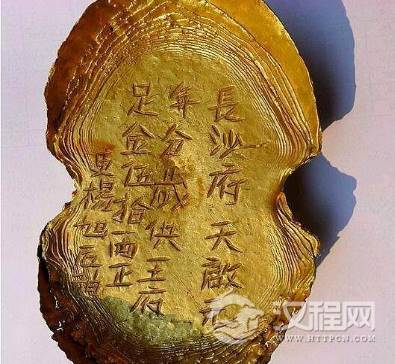 長沙府天啟元
年分歲供王府
足金伍拾両正
吏楊旭匠
汉程网
WWW.HTTPCN.COM